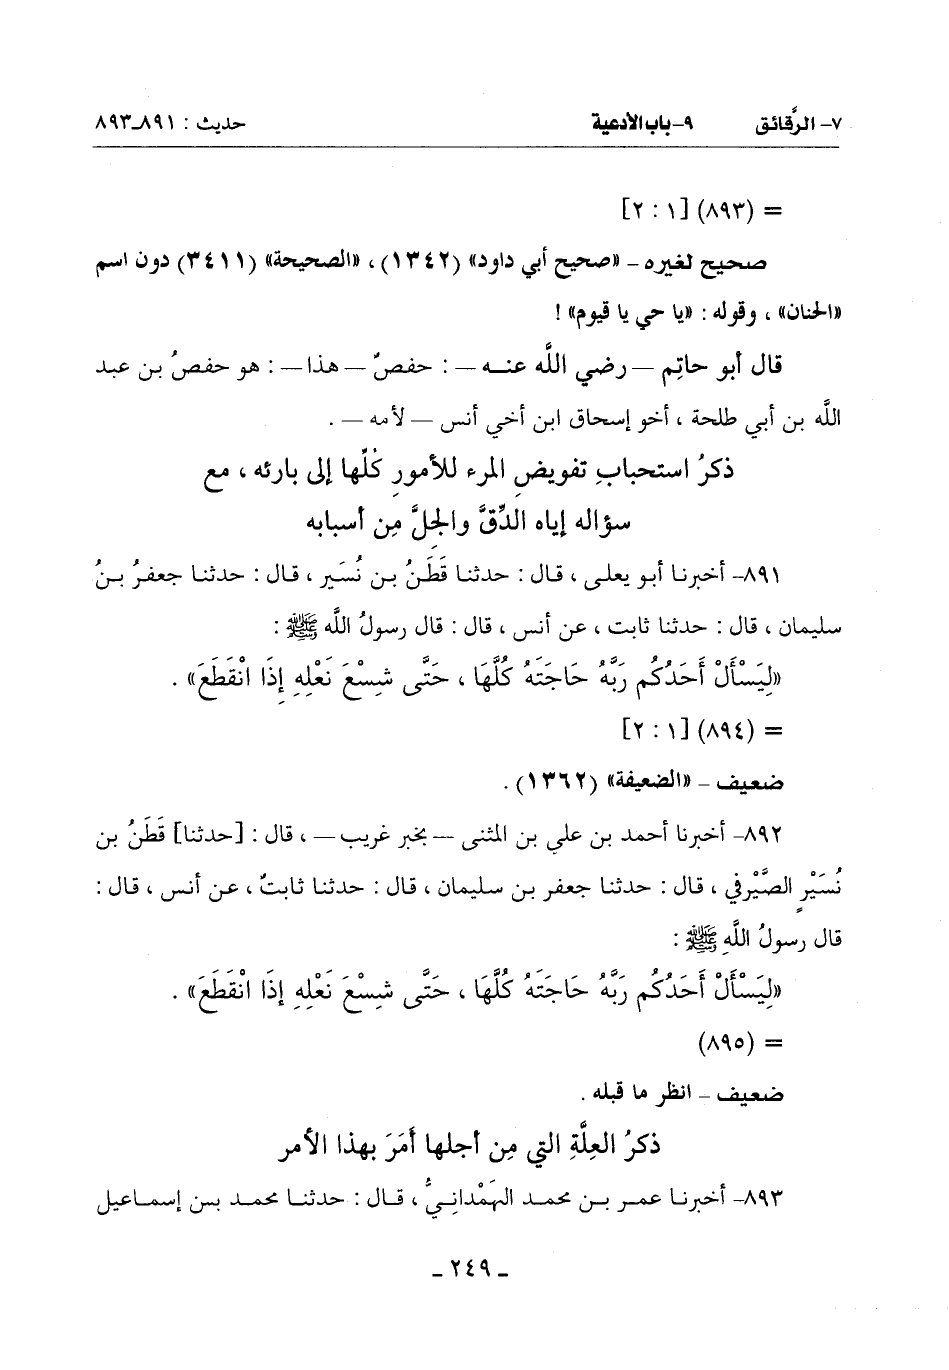 ٧- الرَّقائق ٩-باب الأدعية حديث : ٨٩١ـ٨٩٣
= (٨٩٣) [١ : ٢]
صحيح لغيره - «صحيح أبي داود» (١٣٤٢) ، «الصحيحة» (٣٤١١) دون اسم
«الحنان» ، وقوله : «يا حي يا قيوم» !
قال أبو حاتِم — رضي اللَّه عنه — : حفصٌ — هذا — : هو حفصُ بن عبد
اللَّه بن أبي طلحة ، أخو إسحاق ابن أخي أنس — لأمه — .
ذكرُ استحبابِ تفويضِ المرءِ للأمورِ كُلِّها إلى بارئه ، مع
سؤاله إياه الدِّقَّ والجِلَّ مِن أسبابه
٨٩١- أخبرنا أبو يعلى ، قال : حدثنا قَطَنُ بن نُسَير ، قال : حدثنا جعفرُ بنُ
سليمان ، قال : حدثنا ثابت ، عن أنس ، قال : قال رسولُ اللَّه ﷺ :
«لِيَسْأَلْ أَحَدُكُم رَبَّهُ حَاجَتَهُ كُلَّهَا ، حَتَّى شِسْعَ نَعْلِهِ إِذَا انْقَطَعَ» .
= (٨٩٤) [١ : ٢]
ضعيف - «الضعيفة» (١٣٦٢) .
٨٩٢- أخبرنا أحمد بن علي بن المثنى — بخبر غريب — ، قال : [حدثنا] قَطَنُ بن
نُسَيْرٍ الصَّيْرفي ، قال : حدثنا جعفر بن سليمان ، قال : حدثنا ثابتٌ ، عن أنس ، قال :
قال رسولُ اللَّهِ ﷺ :
«لِيَسْأَلْ أَحَدُكُم رَبَّهُ حَاجَتَهُ كُلَّهَا ، حَتَّى شِسْعَ نَعْلِهِ إِذَا انْقَطَعَ» .
= (٨٩٥)
ضعيف - انظر ما قبله .
ذكرُ العِلَّةِ التي مِن أجلها أَمَرَ بهذا الأمر
٨٩٣- أخبرنا عمر بن محمد الهَمْدانيُّ ، قال : حدثنا محمد بن إسماعيل
- ٢٤٩ -